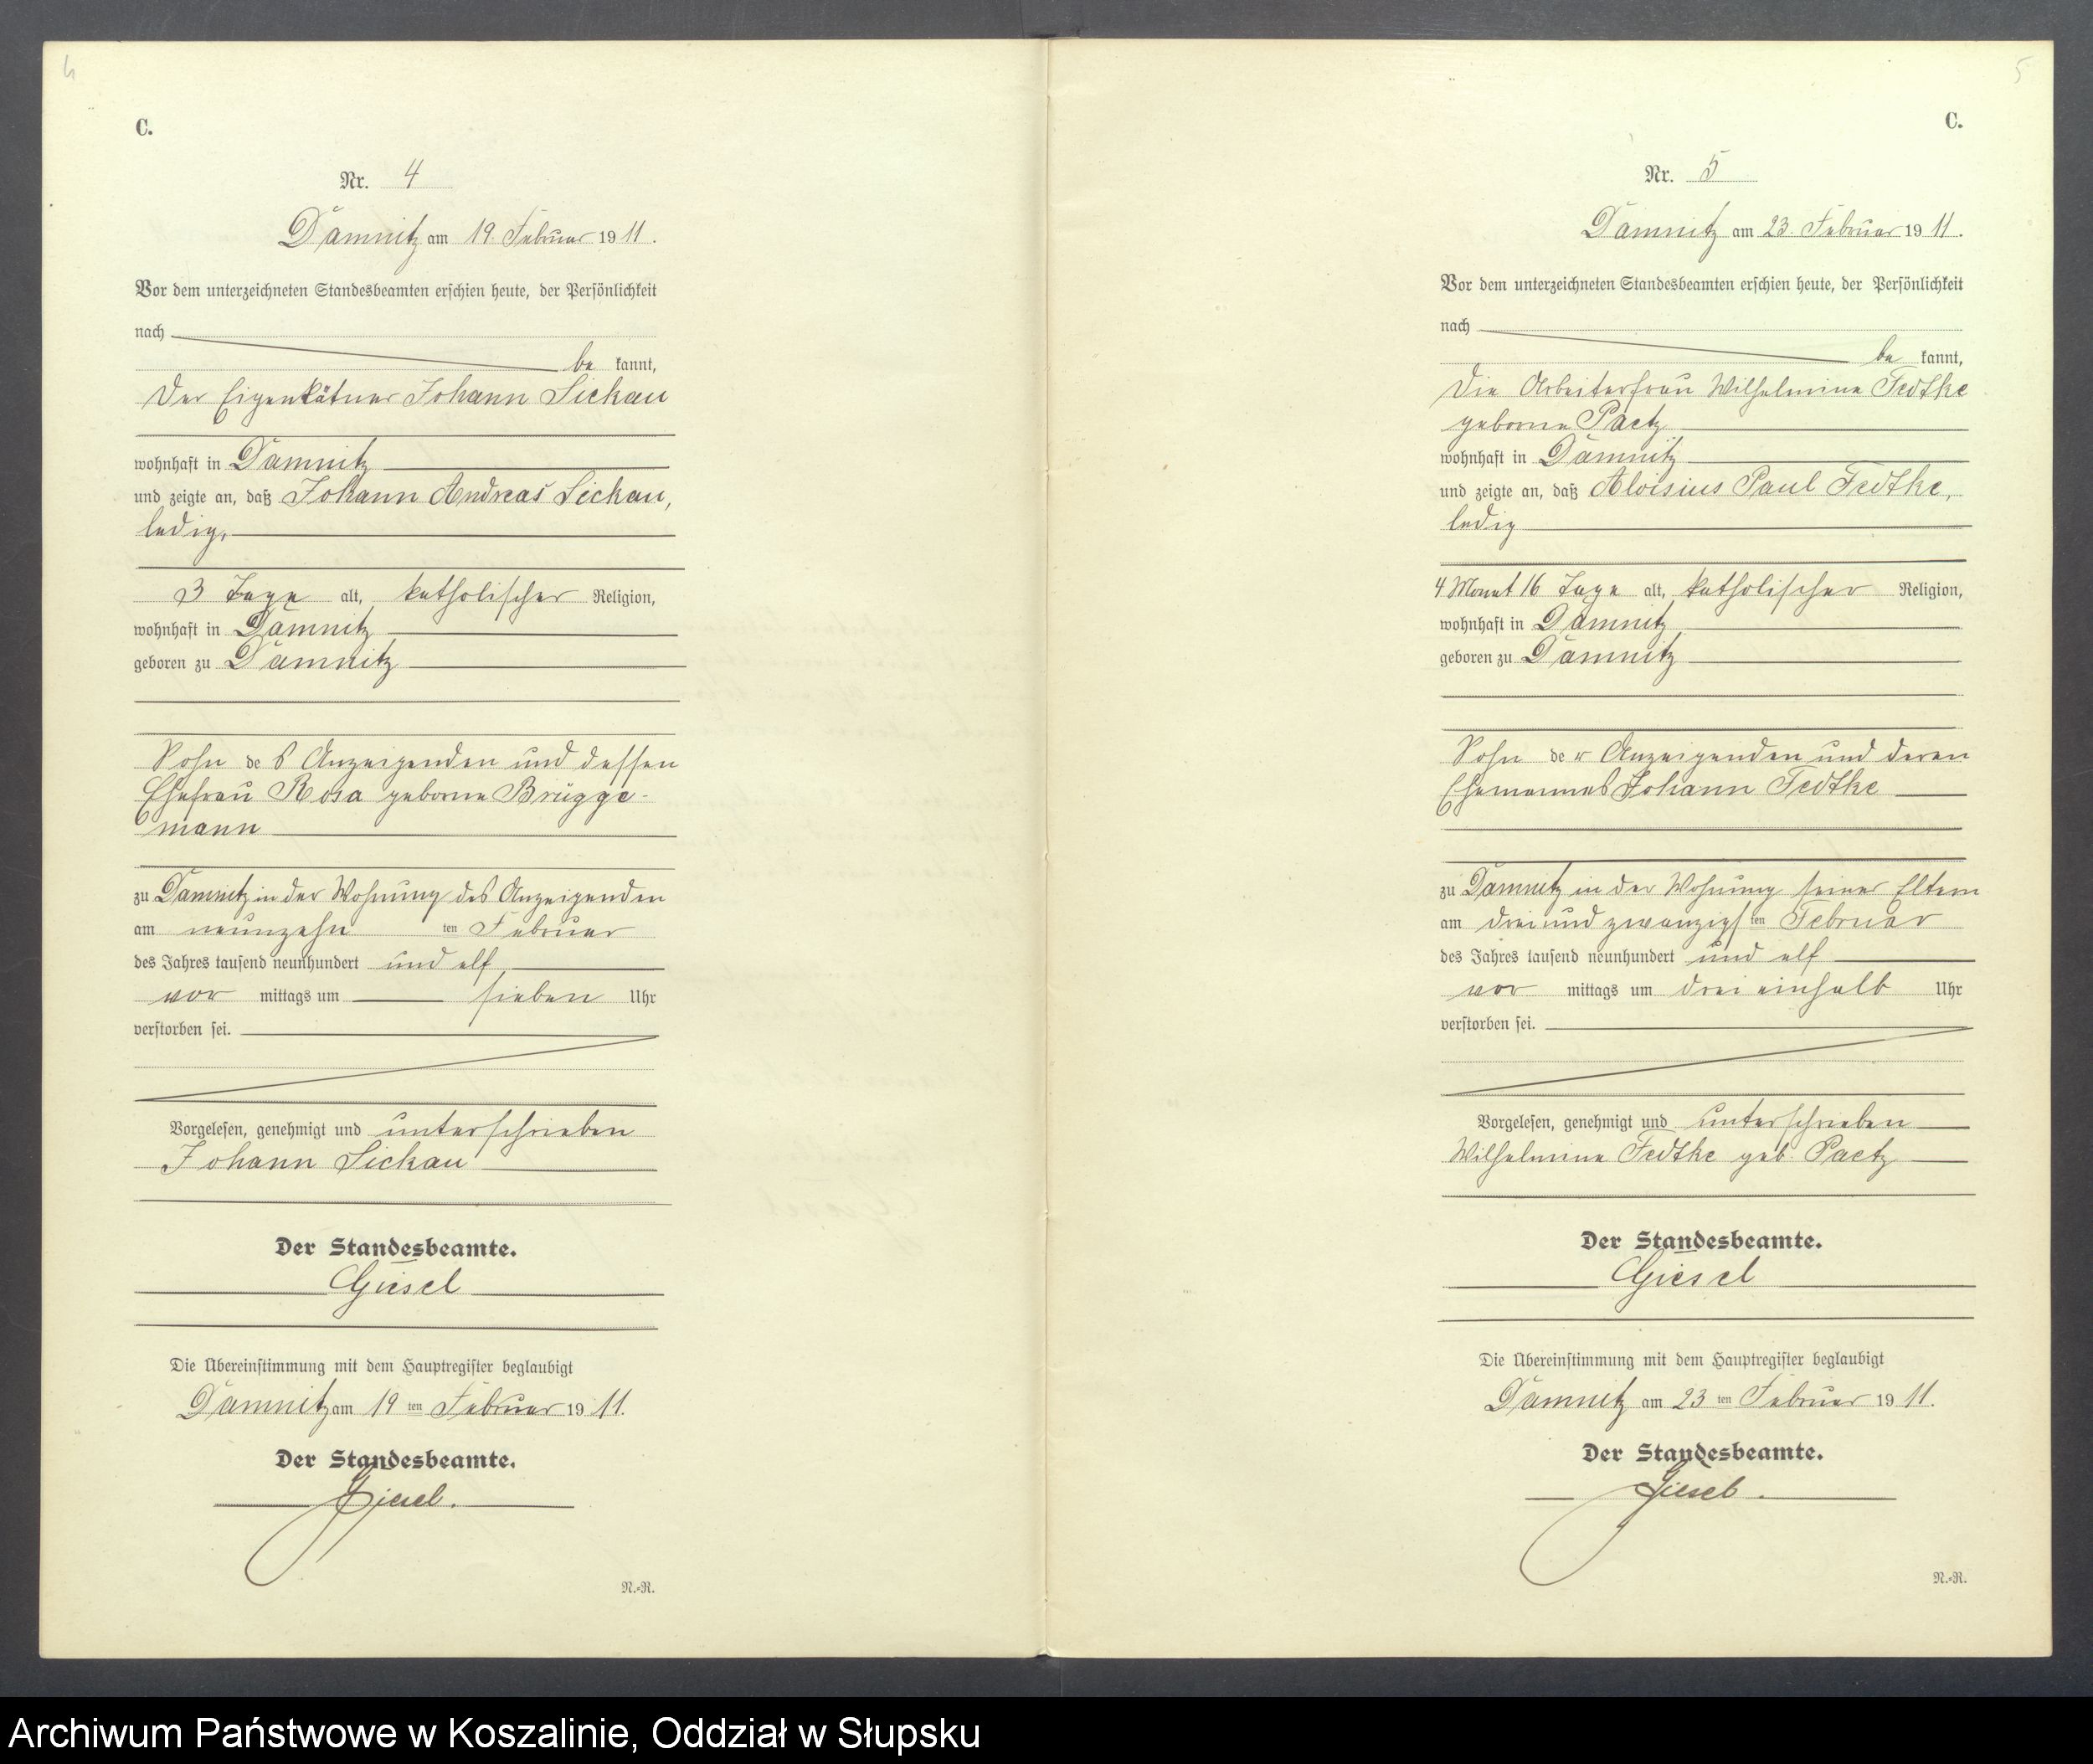 4
C.
Nr. 4
Damnitz am 19. Februar 1911.
Vor dem unterzeichneten Standesbeamten erschien heute, der Persönlichkeit
nach
be kannt,
Der Eigenkätner Johann Lickau
wohnhaft in Damnitz
und zeigte an, daß Johann Andreas Lickau,
ledig,
3 Tage alt, katholischer Religion,
wohnhaft in Damnitz
geboren zu Damnitz
Sohn des Anzeigenden und dessen
Ehefrau Rosa geborne Brügge-
mann
zu Damnitz in der Wohnung des Anzeigenden
am neunzehn ten Februar
des Jahres tausend neunhundert und elf
vor mittags um sieben Uhr
verstorben sei.
Vorgelesen, genehmigt und unterschrieben
Johann Lickau
Der Standesbeamte.
Giesel
Die Übereinstimmung mit dem Hauptregister beglaubigt
Damnitz am 19 ten Februar 1911.
Der Standesbeamte.
Giesel.
N.-R.
5
C.
Nr. 5
Damnitz am 23. Februar 1911.
Vor dem unterzeichneten Standesbeamten erschien heute, der Persönlichkeit
nach
be kannt,
Die Arbeiterfrau Wilhelmine Fedtke
geborne Paetz
wohnhaft in Damnitz
und zeigte an, daß Aloisius Paul Fedtke,
ledig
4 Monat 16 Tage alt, katholischer Religion,
wohnhaft in Damnitz
geboren zu Damnitz
Sohn der Anzeigenden und deren
Ehemannes Johann Fedtke
zu Damnitz in der Wohnung seiner Eltern
am dreiundzwanzigsten Februar
des Jahres tausend neunhundert und elf
vor mittags um drei einhalb Uhr
verstorben sei.
Vorgelesen, genehmigt und unterschrieben
Wilhelmine Fedtke geb. Paetz
Der Standesbeamte.
Giesel
Die Übereinstimmung mit dem Hauptregister beglaubigt
Damnitz am 23 ten Februar 1911.
Der Standesbeamte.
Giesel.
N.-R.
Archiwum Państwowe w Koszalinie, Oddział w Słupsku